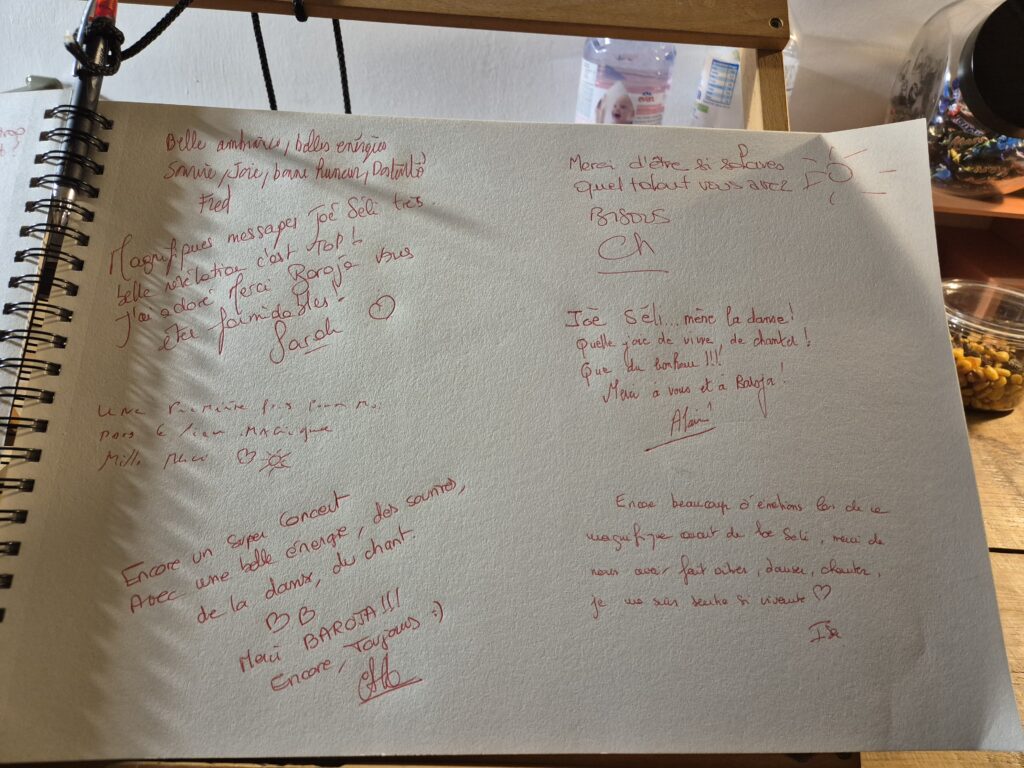 Belle ambiance, belles énergies
Sourire, Joie, bonne Humeur, Dextérité
Fred
Magnifiques messages Joé Séli très
belle révélation c'est TOP !
J'ai adoré Merci Baroja vous
êtes formidables !
Sarah
Une première fois pour moi
dans ce lieu magique
Mille merci
Encore un super concert
Avec une belle énergie, des sourires,
de la danse, du chant.
Merci BAROJA !!!
Encore, Toujours :)
Merci d'être si solaires
quel talent vous avez
BISOUS
Ch
Joé Séli... mène la danse !
Quelle joie de vivre, de chanter !
Que du bonheur !!!
Merci à vous et à Baroja !
Alain
Encore beaucoup d'émotions lors de ce
magnifique concert de Joé Séli, merci de
nous avoir fait vibrer, danser, chanter,
je me suis sentie si vivante ♡
Isa
evian